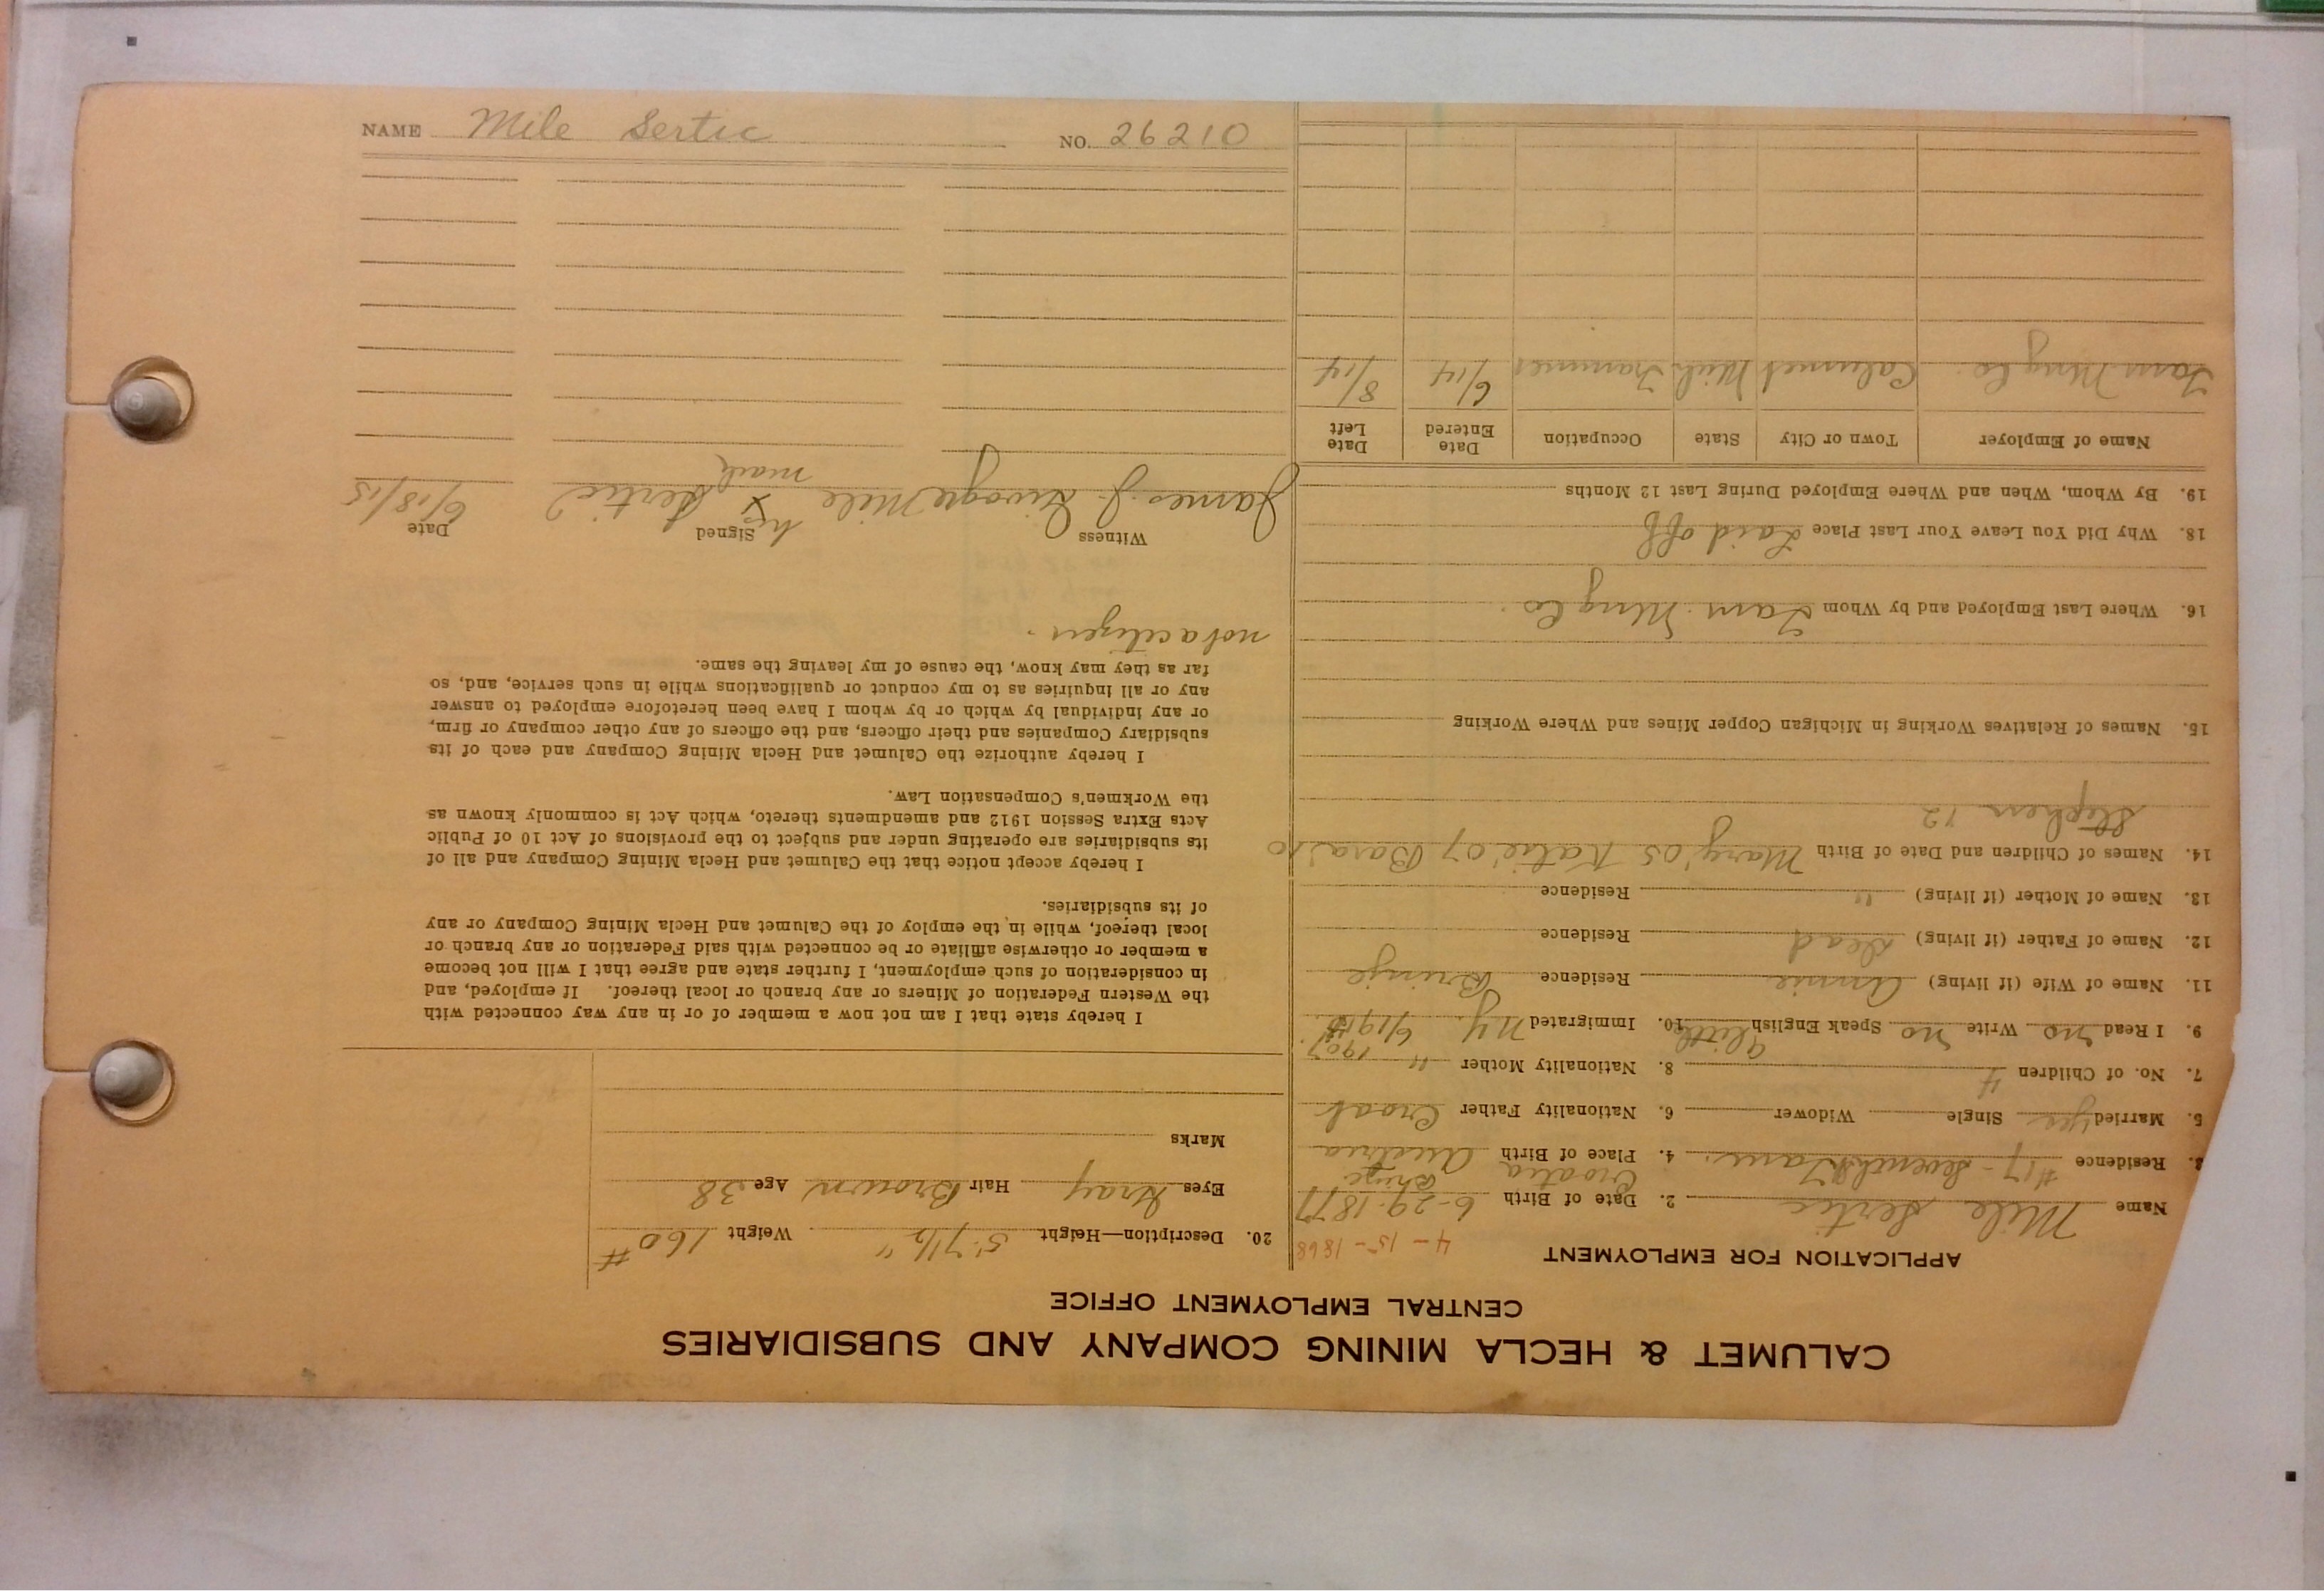 CALUMET & HECLA MINING COMPANY AND SUBSIDIARIES
CENTRAL EMPLOYMENT OFFICE
APPLICATION FOR EMPLOYMENT
4 - 15 - 1868
Name Mile Sertic 2. Date of Birth 6-29-1877
Croatia
3. Residence #17 - Seventh St 4. Place of Birth Austria
5. Married yes Single Widower 6. Nationality Father Croat
7. No. of Children 4 8. Nationality Mother " 1907
9. I Read no Write no Speak English little 10. Immigrated N.Y. 6/1913
11. Name of Wife (if living) Annie Residence Brinje
12. Name of Father (if living) Dead Residence
13. Name of Mother (if living) " Residence
14. Names of Children and Date of Birth Mary '05 Katie '07 Bara '10
Stephen 12
15. Names of Relatives Working in Michigan Copper Mines and Where Working
16. Where Last Employed and by Whom Tam. Mng Co.
18. Why Did You Leave Your Last Place Laid off
19. By Whom, When and Where Employed During Last 12 Months
Name of Employer Town or City State Occupation Date Entered Date Left
Tam Mng Co. Calumet Mich Trammer 6/14 8/14
20. Description—Height 5' 7 1/2" Weight 160 #
Eyes Gray Hair Brown Age 38
Marks
I hereby state that I am not now a member of or in any way connected with
the Western Federation of Miners or any branch or local thereof. If employed, and
in consideration of such employment, I further state and agree that I will not become
a member or otherwise affiliate or be connected with said Federation or any branch or
local thereof, while in the employ of the Calumet and Hecla Mining Company or any
of its subsidiaries.
I hereby accept notice that the Calumet and Hecla Mining Company and all of
its subsidiaries are operating under and subject to the provisions of Act 10 of Public
Acts Extra Session 1912 and amendments thereto, which Act is commonly known as
the Workmen's Compensation Law.
I hereby authorize the Calumet and Hecla Mining Company and each of its
subsidiary Companies and their officers, and the officers of any other company or firm,
or any individual by which or by whom I have been heretofore employed to answer
any or all inquiries as to my conduct or qualifications while in such service, and, so
far as they may know, the cause of my leaving the same.
not a citizen.
Witness Signed Date
his
James J. Mile X Sertic 6/18/15
mark
NAME Mile Sertic NO. 26210